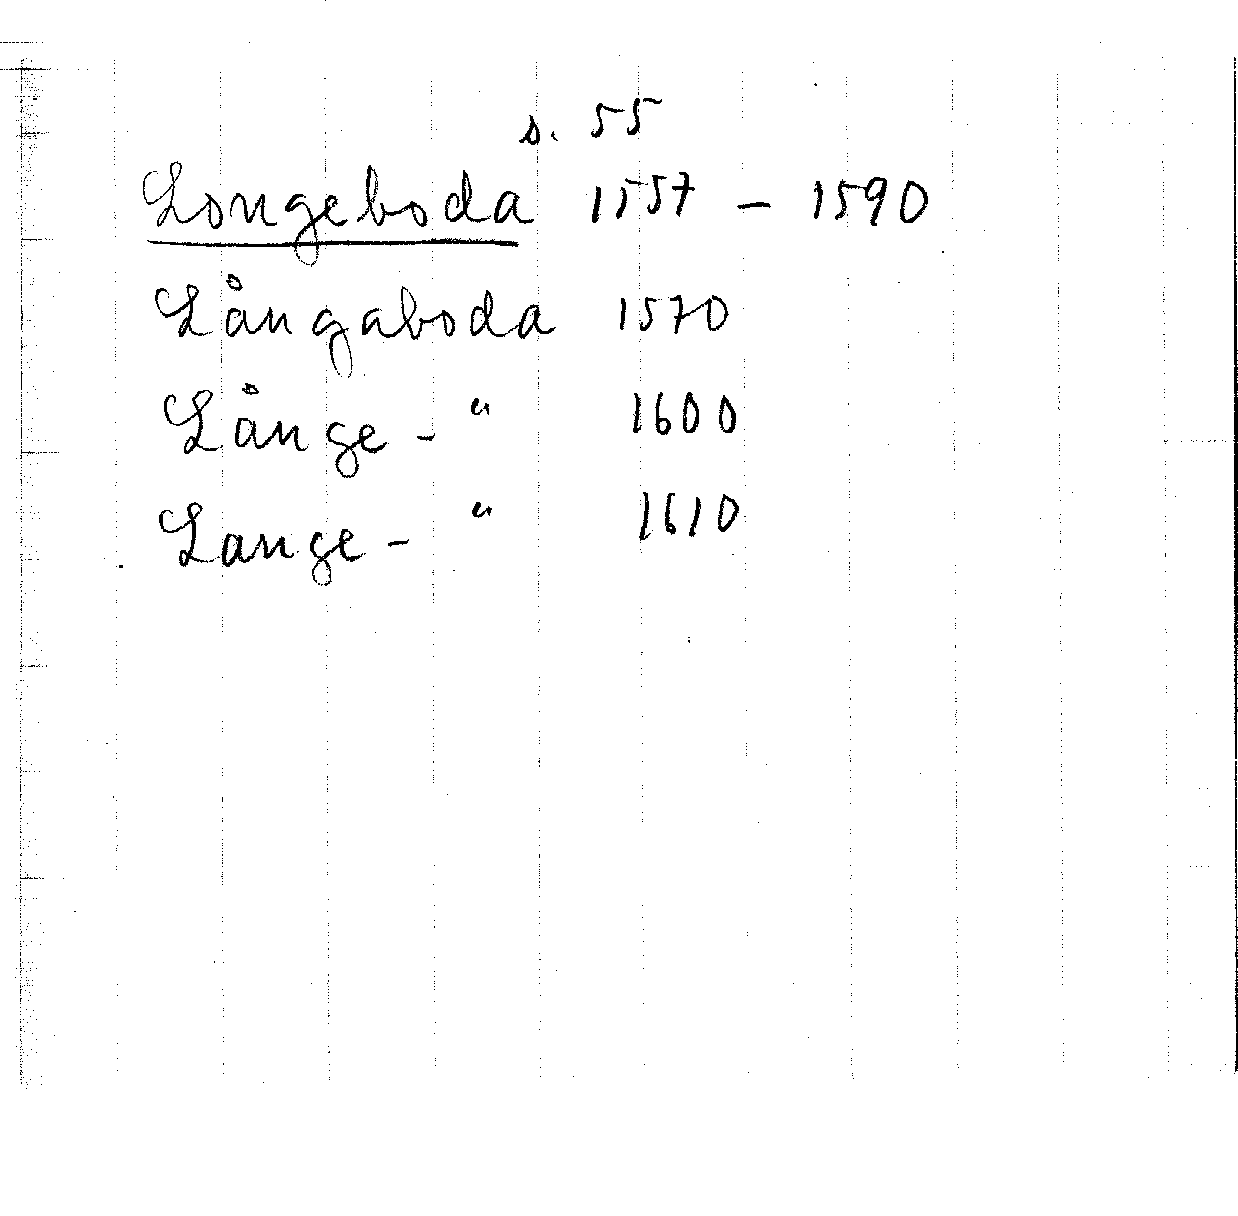 s. 55
Longeboda 1557 - 1590
Långaboda 1570
Långe - " 1600
Lange - " 1610